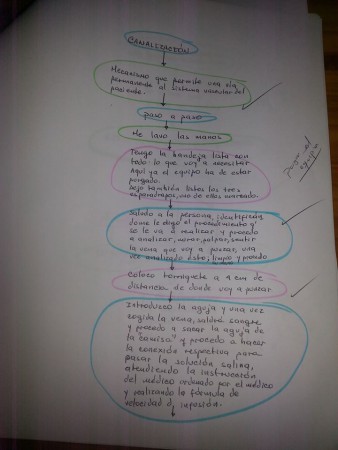 CANALIZACIÓN
Mecanismo que permite una vía
permanente al sistema vascular del
paciente.
paso a paso
Me lavo las manos
Tengo la bandeja lista con
todo lo que voy a necesitar
Aquí ya el equipo ha de estar
purgado.
Dejo también listos los tres
esparadrapos, uno de ellos marcado.
Saludo a la persona, identifico,
le digo el procedimiento q
se le va a realizar y procedo
a analizar, mirar, palpar, sentir
la vena que voy a puncar, una
vez analizado esto, limpio y procedo
Coloco torniquete a 4 cm de
distancia, de donde voy a puncar
Introduzco la aguja y una vez
cogida la vena, saldrá sangre
y procedo a sacar la aguja de
la "camisa" y procedo a hacer
la conexión respectiva para
pasar la solución salina,
atendiendo la instrucción
del médico ordenado por el médico
y realizando la fórmula de
velocidad d infusión.
equipo